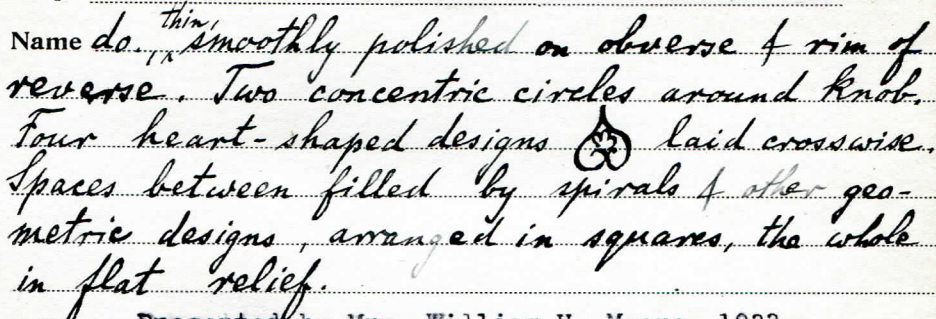 Name do., thin, smoothly polished on obverse & rim of
reverse. Two concentric circles around knob.
Four heart-shaped designs laid crosswise.
Spaces between filled by spirals & other geo-
metric designs, arranged in squares, the whole
in flat relief.
Presented by Mrs. William H. Moore, 1933